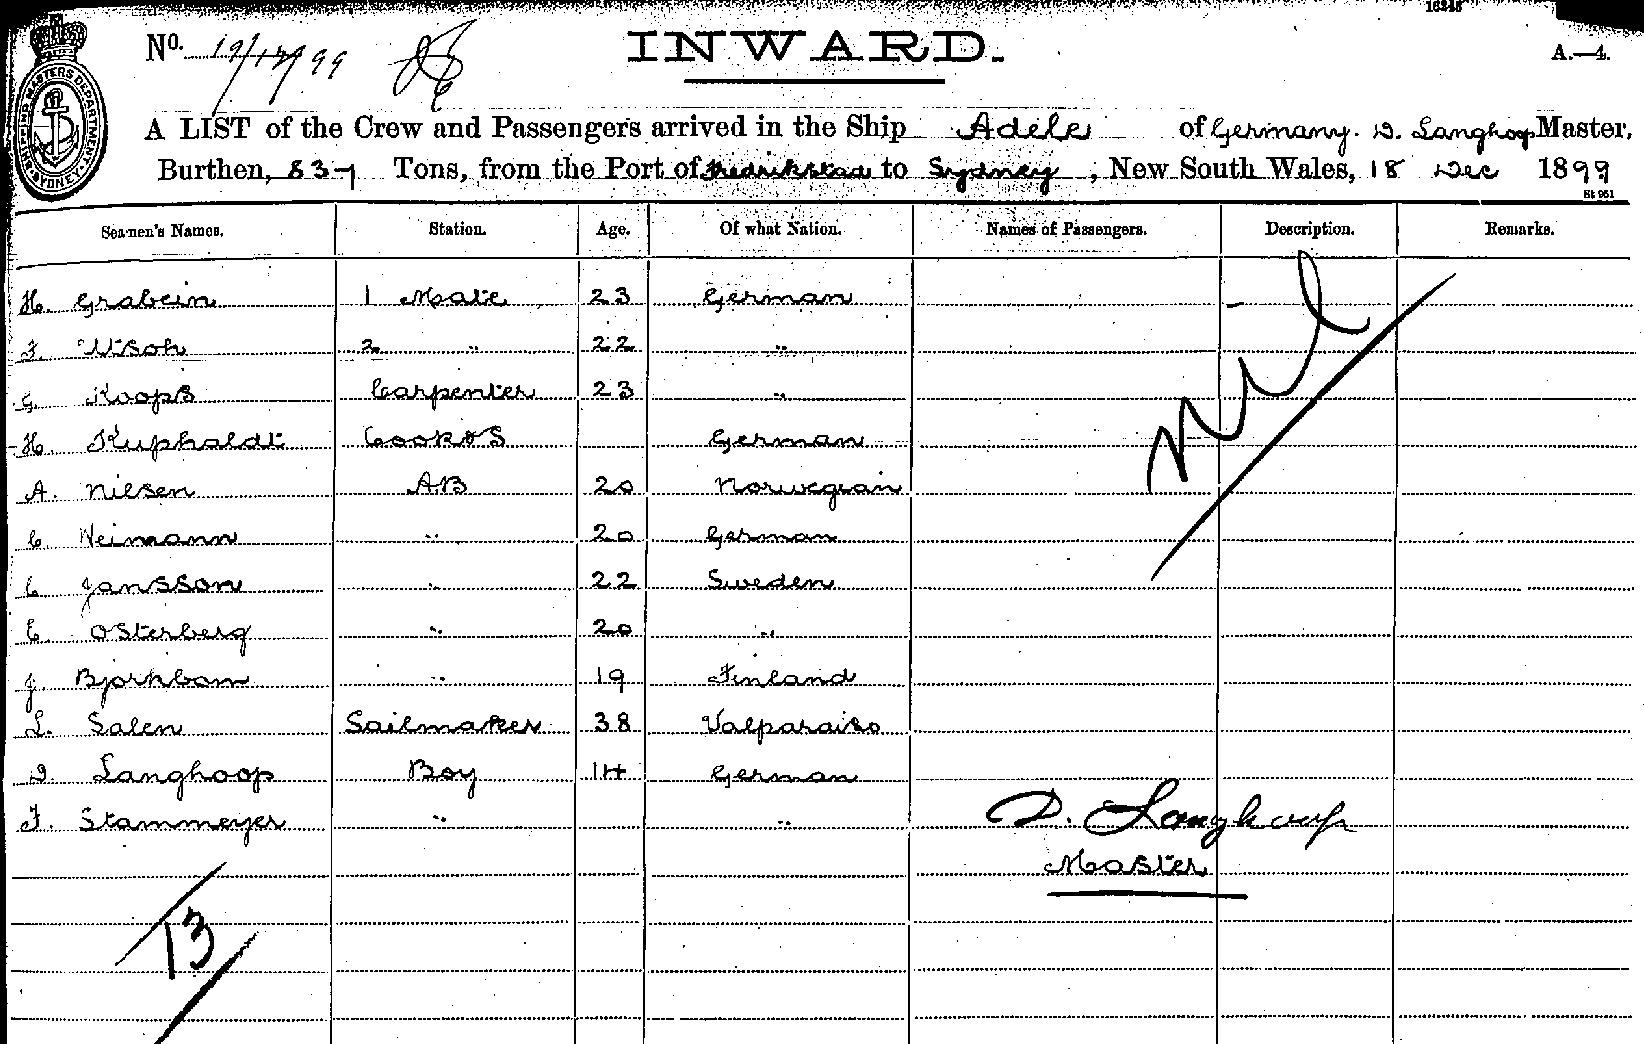 16248
No. 19/12/99
INWARD.
A.—4.
SHIPPING MASTERS DEPARTMENT SYDNEY
A LIST of the Crew and Passengers arrived in the Ship Adele of Germany. D. Langhoop Master,
Burthen, 837 Tons, from the Port of Fredrikstad to Sydney, New South Wales, 18 Dec 1899
St 951
Seamen's Names. Station. Age. Of what Nation. Names of Passengers. Description. Remarks.
H. Grabein 1 Mate 23 German
F. 2 " 22 "
G. Koops Carpenter 23 "
H. Kuphaldt Cook & S German
A. Nilsen AB 20 Norwegian
C. Neimann " 20 German
C Jansson " 22 Sweden
C. Osterberg " 20 "
J. Bjorkbom " 19 Finland
L. Salen Sailmaker 38 Valparaiso
D. Langhoop Boy 14 German
F. Stammeyer " "
Nil
D. Langhoop
Master
13